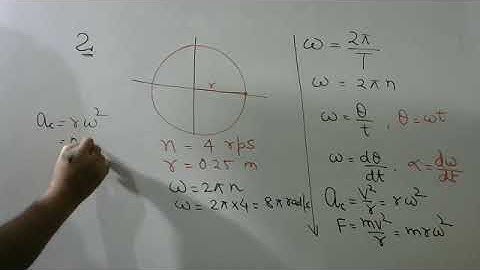 2
r
a꜀ = rω²
=
n = 4 rps
r = 0.25 m
ω = 2πn
ω = 2π×4 = 8π rad/s
ω = 2π/T
ω = 2πn
ω = θ/t, θ = ωt
ω = dθ/dt, α = dω/dt
a꜀ = v²/r = rω²
F = mv²/r = mrω²